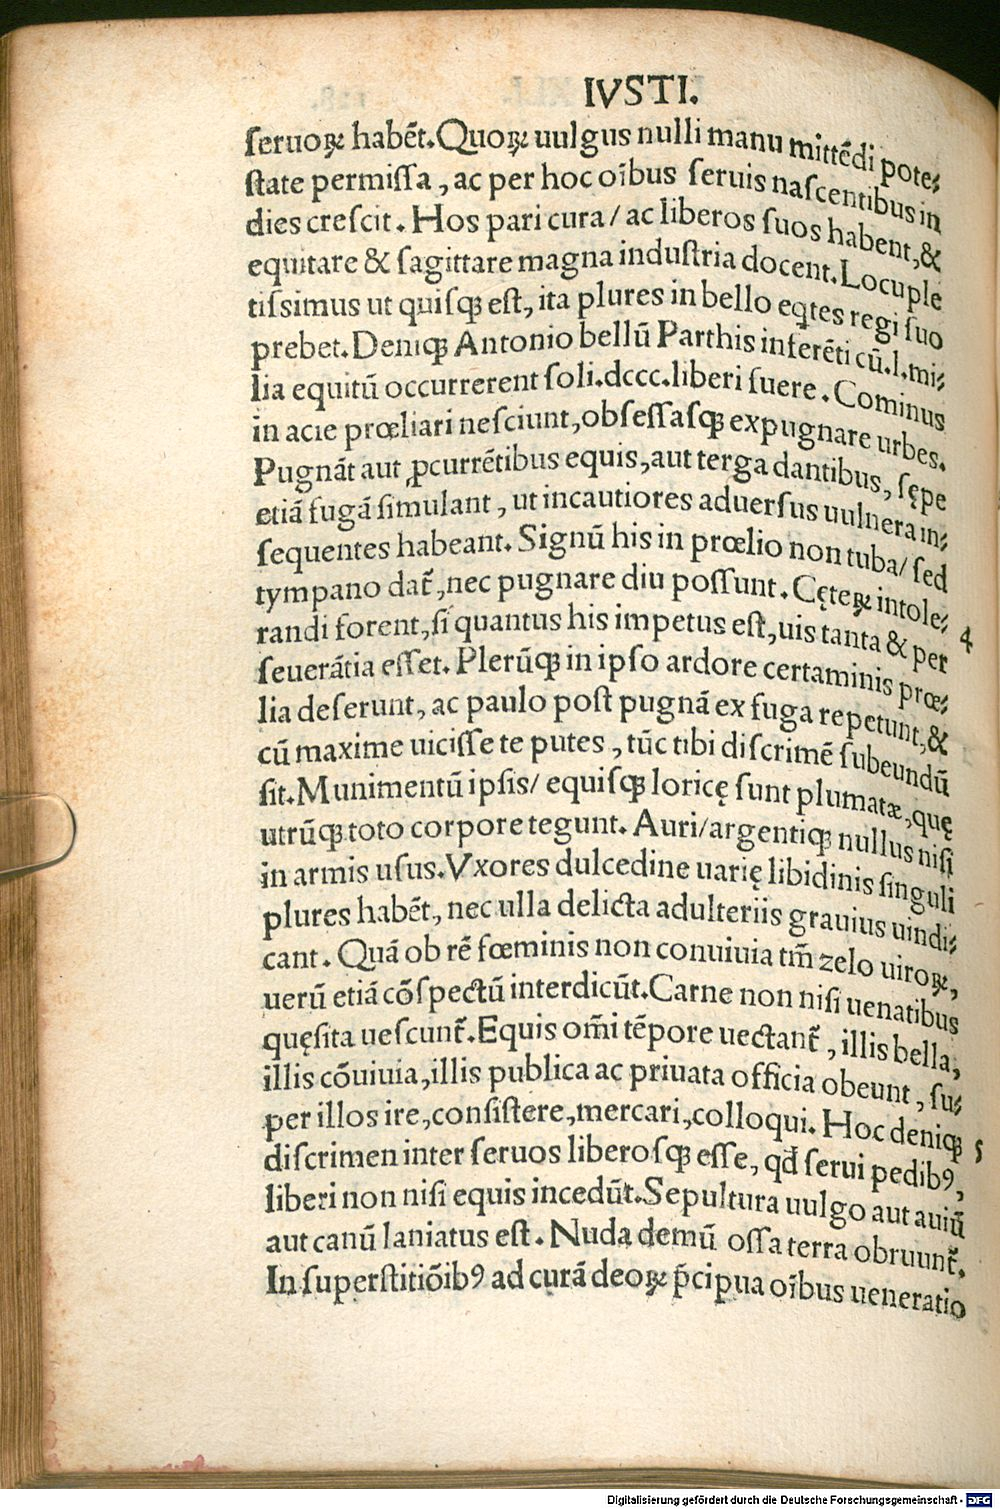 IVSTI.
ſeruoꝝ habēt. Quoꝝ uulgus nulli manu mittēdi pote⸗
ſtate permiſſa, ac per hoc oībus ſeruis naſcentibus in
dies creſcit. Hos pari cura/ ac liberos ſuos habent, &
equitare & ſagittare magna induſtria docent. Locuple
tiſsimus ut quiſqꝫ eſt, ita plures in bello eqtes regi ſuo
prebet. Deniqꝫ Antonio bellū Parthis inferēti cū .l. mi⸗
lia equitū occurrerent ſoli .dccc. liberi fuere. Cominus
in acie prœliari neſciunt, obſeſſaſqꝫ expugnare urbes.
Pugnāt aut ꝓcurrētibus equis, aut terga dantibus, ſępe
etiā fugā ſimulant, ut incautiores aduerſus uulnera in⸗
ſequentes habeant. Signū his in prœlio non tuba/ ſed
tympano dat᷑, nec pugnare diu poſſunt. Cęteꝝ intole⸗
randi forent, ſi quantus his impetus eſt, uis tanta & per 4
ſeuerātia eſſet. Plerūqꝫ in ipſo ardore certaminis prœ⸗
lia deſerunt, ac paulo poſt pugnā ex fuga repetunt, &
cū maxime uiciſſe te putes, tūc tibi diſcrimē ſubeundū
ſit. Munimentū ipſis/ equiſqꝫ loricę ſunt plumatæ, quę
utrūqꝫ toto corpore tegunt. Auri/ argentiqꝫ nullus niſi
in armis uſus. Vxores dulcedine uarię libidinis ſinguli
plures habēt, nec ulla delicta adulteriis grauius uindi⸗
cant. Quā ob rē fœminis non conuiuia tm̄ zelo uiroꝝ,
uerū etiā cōſpectū interdicūt. Carne non niſi uenatibus
quęſita ueſcunt᷑. Equis om̄i tēpore uectant᷑, illis bella,
illis cōuiuia, illis publica ac priuata officia obeunt, ſu⸗
per illos ire, conſiſtere, mercari, colloqui. Hoc deniqꝫ 5
diſcrimen inter ſeruos liberoſqꝫ eſſe, qđ ſerui pedibꝰ,
liberi non niſi equis incedūt. Sepultura uulgo aut auiū
aut canū laniatus eſt. Nuda demū oſſa terra obruunt᷑.
In ſuperſtitiōibꝰ ad curā deoꝝ p̄cipua oībus ueneratio
Digitalisierung gefördert durch die Deutsche Forschungsgemeinschaft - DFG